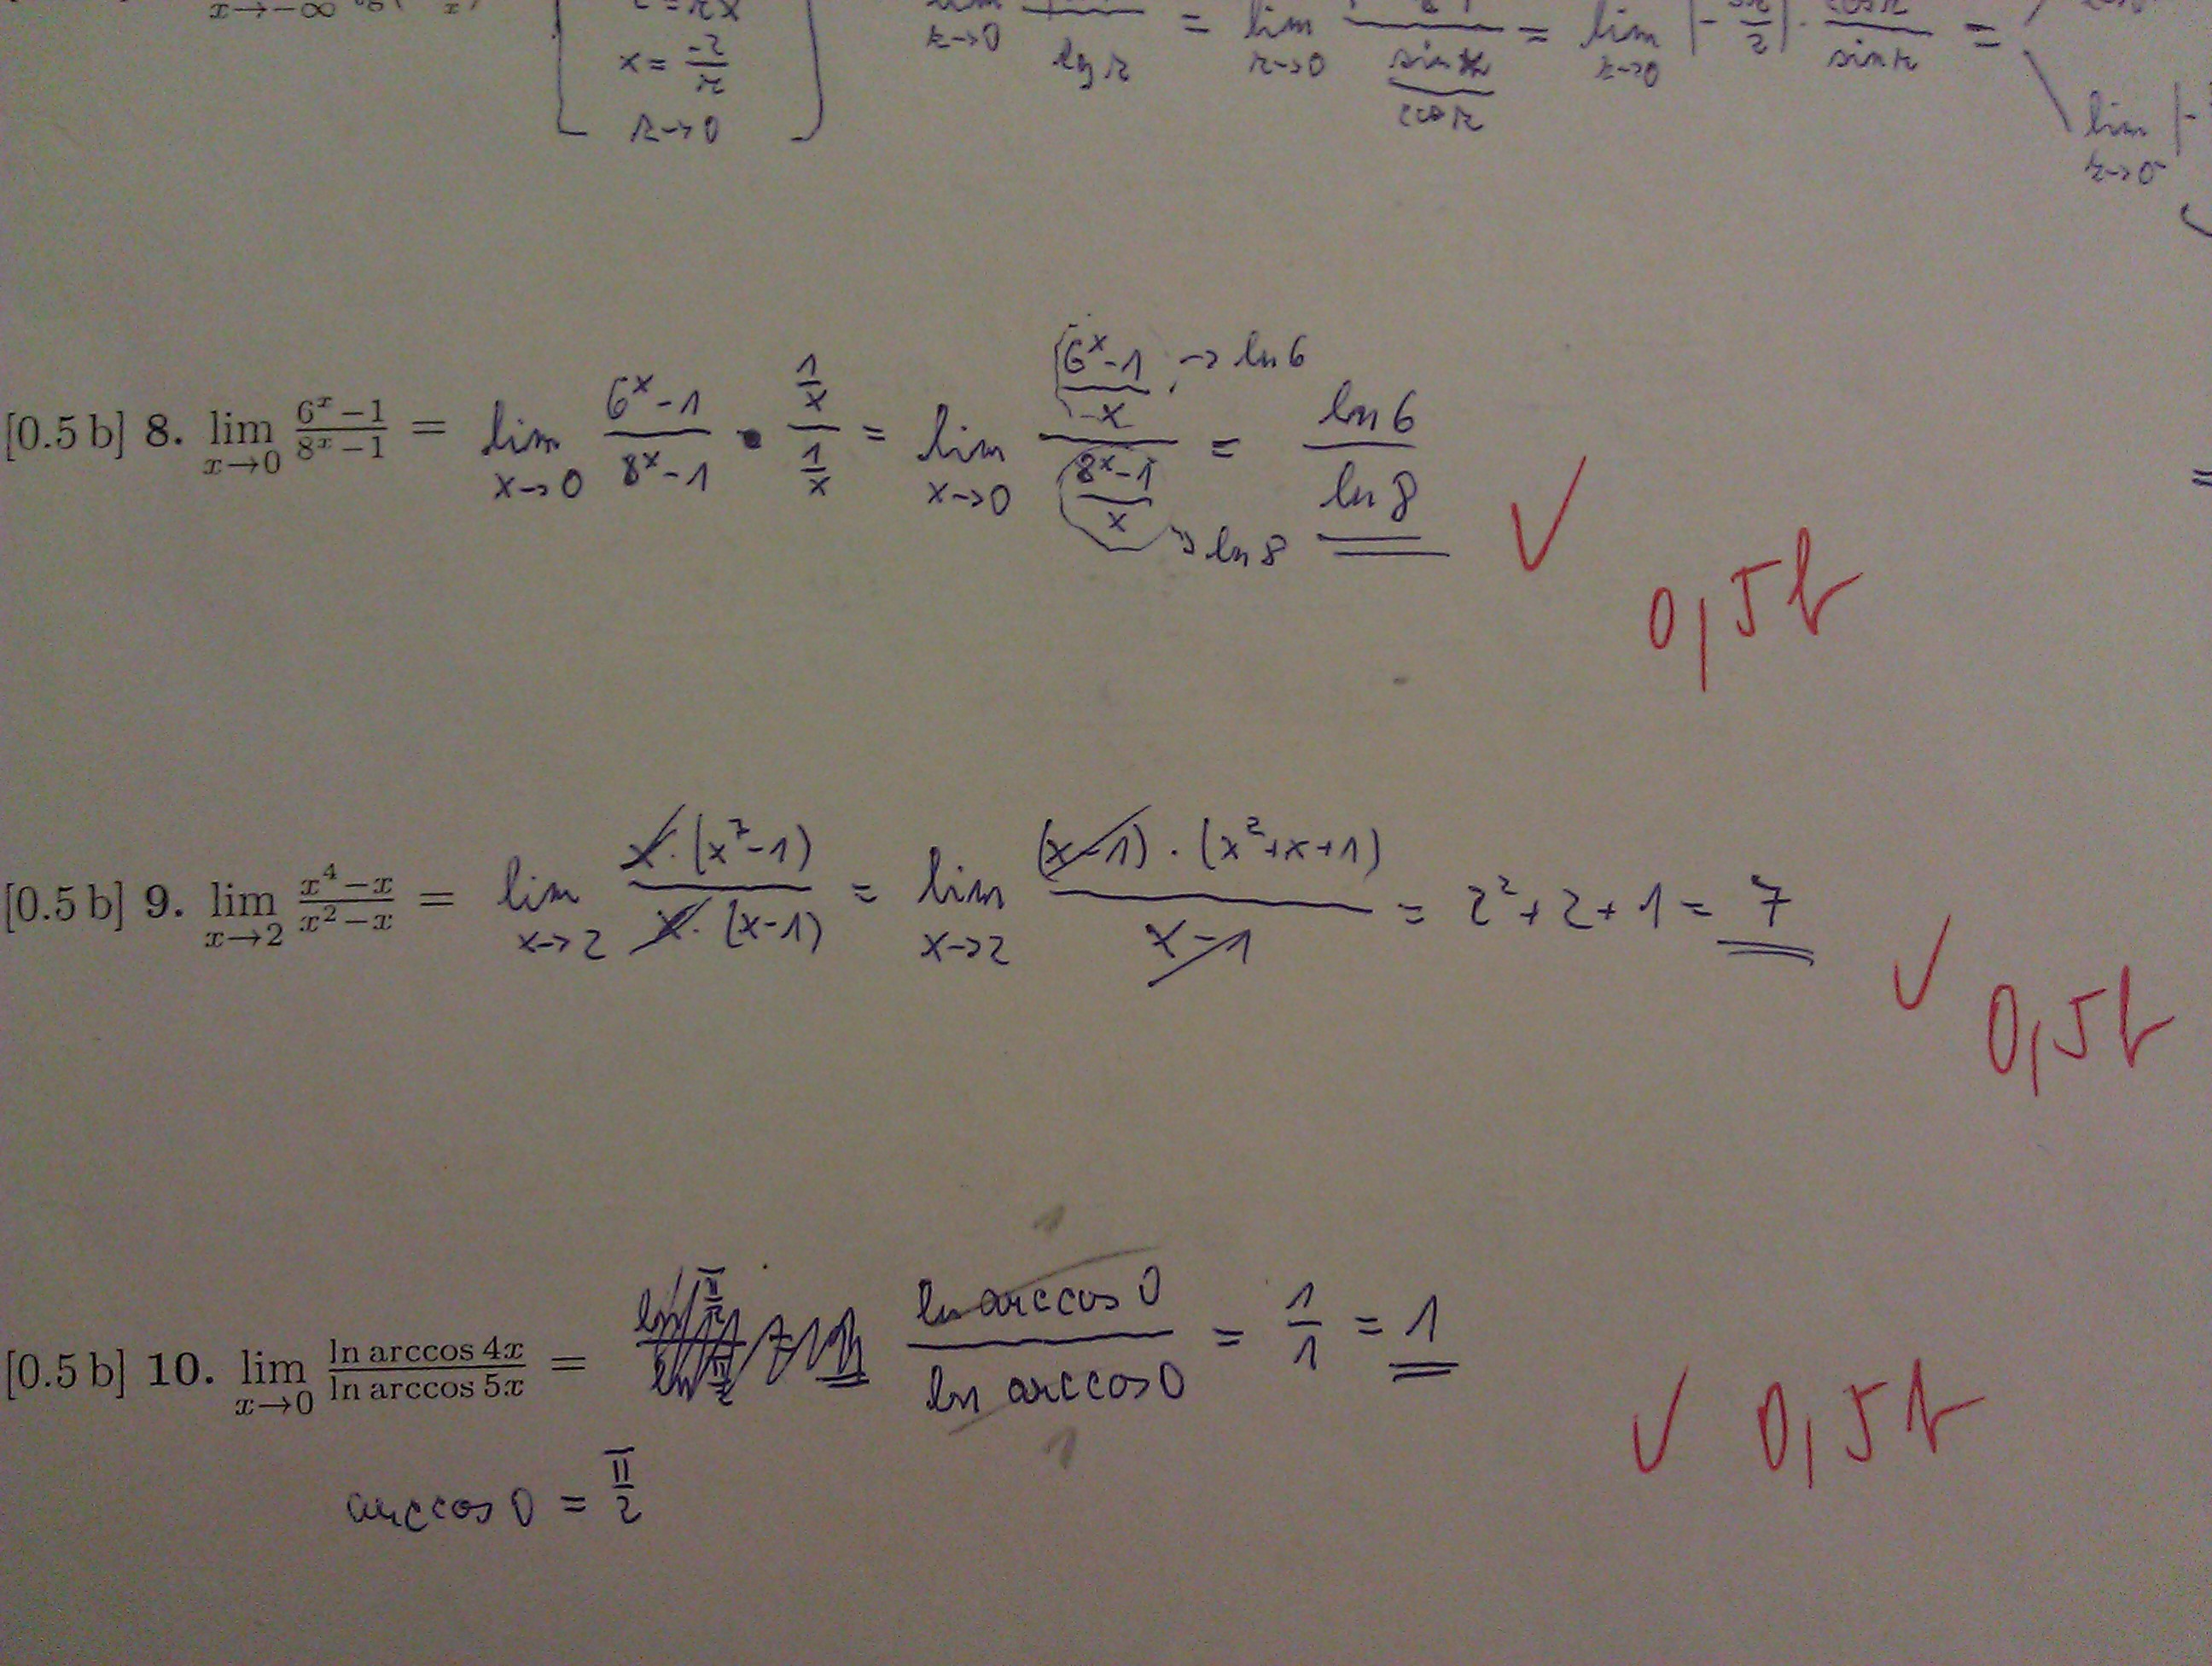 x→-∞
x = -2/r
r→0
lim r→0 / tg r = lim r→0 / (sin r / cos r) = lim r→0 |-3r/2| · cos r / sin r =
lim r→0⁻ |-
[0.5 b] 8. lim x→0 (6ˣ-1)/(8ˣ-1) = lim x→0 (6ˣ-1)/(8ˣ-1) · (1/x)/(1/x) = lim x→0 ((6ˣ-1)/x)/((8ˣ-1)/x) = ln 6 / ln 8 ✓
→ ln 6
→ ln 8
0,5b
[0.5 b] 9. lim x→2 (x⁴-x)/(x²-x) = lim x→2 x·(x³-1) / x·(x-1) = lim x→2 (x-1)·(x²+x+1) / x-1 = 2²+2+1 = 7 ✓
0,5b
[0.5 b] 10. lim x→0 ln arccos 4x / ln arccos 5x = ln arccos 0 / ln arccos 0 = 1/1 = 1
1
1
✓ 0,5b
arccos 0 = π/2